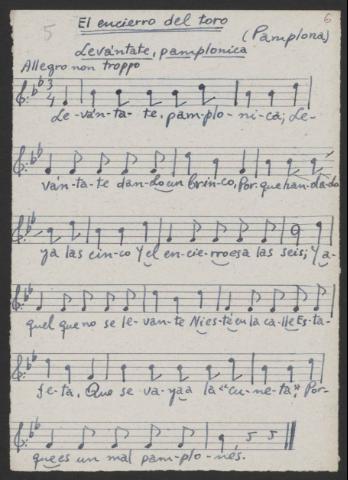 5
6
El encierro del toro
(Pamplona)
Levántate, pamplonica
Allegro non troppo
3
4
Le-ván-ta-te, pam-plo-ni-ca; Le-
ván-ta-te dan-do un brin-co, Por-que han dado
ya las cin-co Y el en-cie-rro es a las seis; Y a-
quel que no se le-van-te Ni es-té en la ca-lle Es-ta-
fe-ta, Que se va-ya a la "cu-ne-ta", Por-
que es un mal pam-plo-nés.